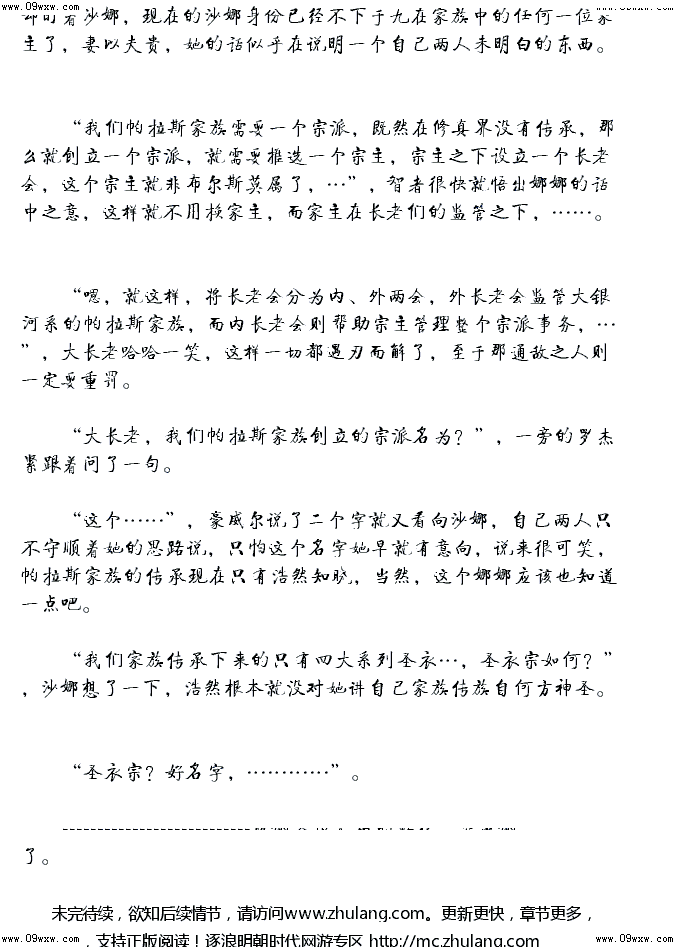 www.09wxw.cn www.09wxw.cn
却时看沙娜，现在的沙娜身份已经不下于九在家族中的任何一位家
主了，妻以夫贵，她的话似乎在说明一个自己两人未明白的东西。
“我们帕拉斯家族需要一个宗派，既然在修真界没有传承，那
么就创立一个宗派，就需要推选一个宗主，宗主之下设立一个长老
会，这个宗主就非布尔斯莫属了，…”，智者很快就悟出娜娜的话
中之意，这样就不用换家主，而家主在长老们的监管之下，……。
“嗯，就这样，将长老会分为内、外两会，外长老会监管大银
河系的帕拉斯家族，而内长老会则帮助宗主管理整个宗派事务，…
”，大长老哈哈一笑，这样一切都遇刃而解了，至于那通敌之人则
一定要重罚。
“大长老，我们帕拉斯家族创立的宗派名为？”，一旁的罗杰
紧跟着问了一句。
“这个……”，豪威尔说了二个字就又看向沙娜，自己两人只
不守顺着她的思路说，只怕这个名字她早就有意向，说来很可笑，
帕拉斯家族的传承现在只有浩然知晓，当然，这个娜娜应该也知道
一点吧。
“我们家族传承下来的只有四大系列圣衣…，圣衣宗如何？”
，沙娜想了一下，浩然根本就没对她讲自己家族传族自何方神圣。
“圣衣宗？好名字，…………”。
---------------------------
了。
未完待续，欲知后续情节，请访问www.zhulang.com。更新更快，章节更多，
，支持正版阅读！逐浪明朝时代网游专区 http://mc.zhulang.com
www.09wxw.cn www.09wxw.cn